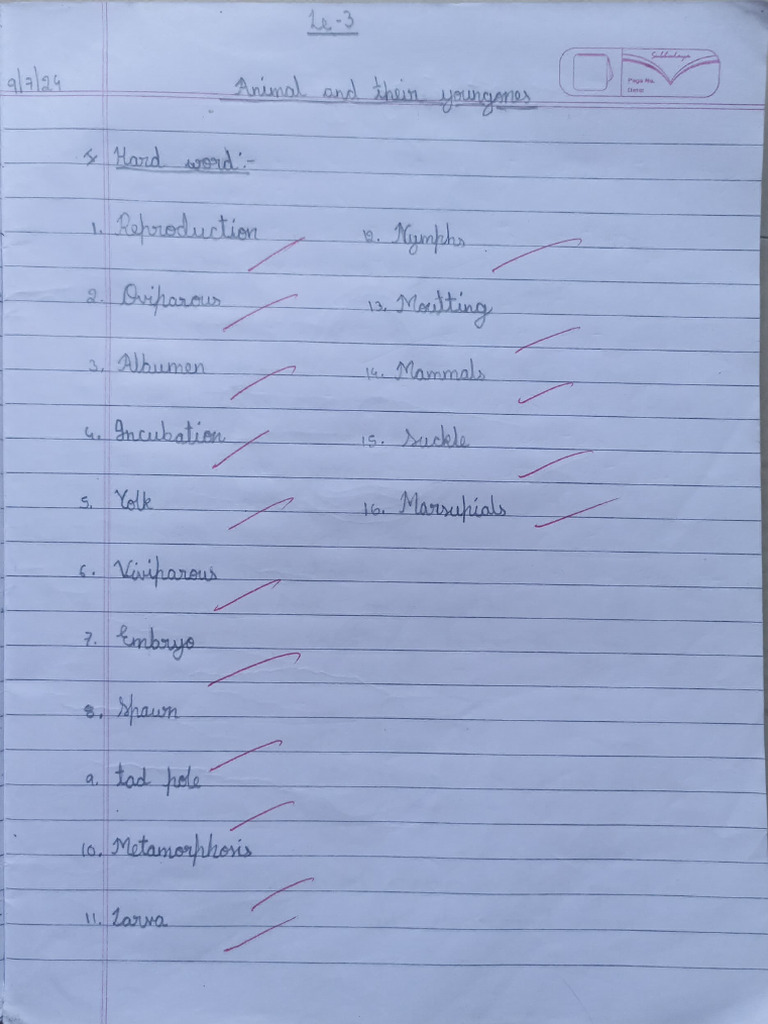 Le-3
9/7/24
Animal and their youngones
Page No.
Date:
Hard word:-
1. Reproduction
2. Oviparous
3. Albumen
4. Incubation
5. Yolk
6. Viviparous
7. Embryo
8. Spawn
9. tad pole
10. Metamorphosis
11. Larva
12. Nymphs
13. Moutting
14. Mammals
15. Suckle
16. Marsupials